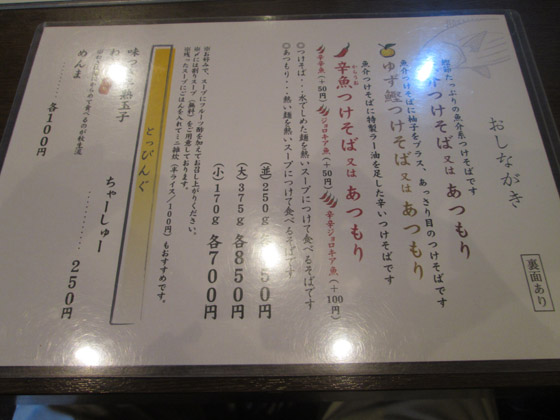 おしながき
裏面あり
つけそば 又は あつもり
たっぷりの魚介系つけそばです
ゆず鰹つけそば 又は あつもり
魚介つけそばに柚子をプラス、あっさり目のつけそばです
辛魚つけそば 又は あつもり
からうお
魚介つけそばに特製ラー油を足した辛いつけそばです
辛辛魚(+50円) ジョロキア魚(+50円) 辛辛ジョロキア魚(+100円)
◎つけそば・・・水でしめた麺を熱いスープにつけて食べるそばです
◎あつもり・・・熱い麺を熱いスープにつけて食べるそばです
(並)250g 50円
(大)375g 各850円
(小)170g 各700円
※お好みで、スープにフルーツ酢を加えてお召し上がりください。
※〆には割りスープ(無料)をご用意しております。
※残ったスープにごはんを入れてミニ雑炊(半ライス/100円)もおすすめです。
とっぴんぐ
味つ 熟玉子
ちゃーしゅー
250円
めんま
各100円